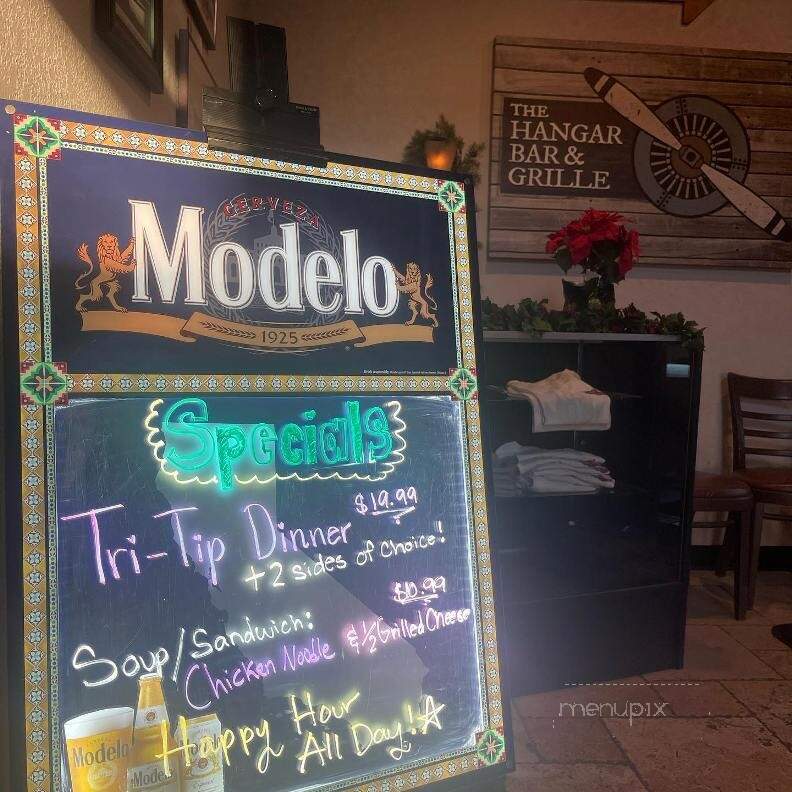 THE
HANGAR
BAR &
GRILLE
CERVEZA
Modelo
1925
Specials
$19.99
Tri-Tip Dinner
+ 2 sides of choice!
$10.99
Soup/Sandwich:
Chicken Noodle & 1/2 Grilled Cheese
Happy Hour
All Day!
Modelo
Model
menupix